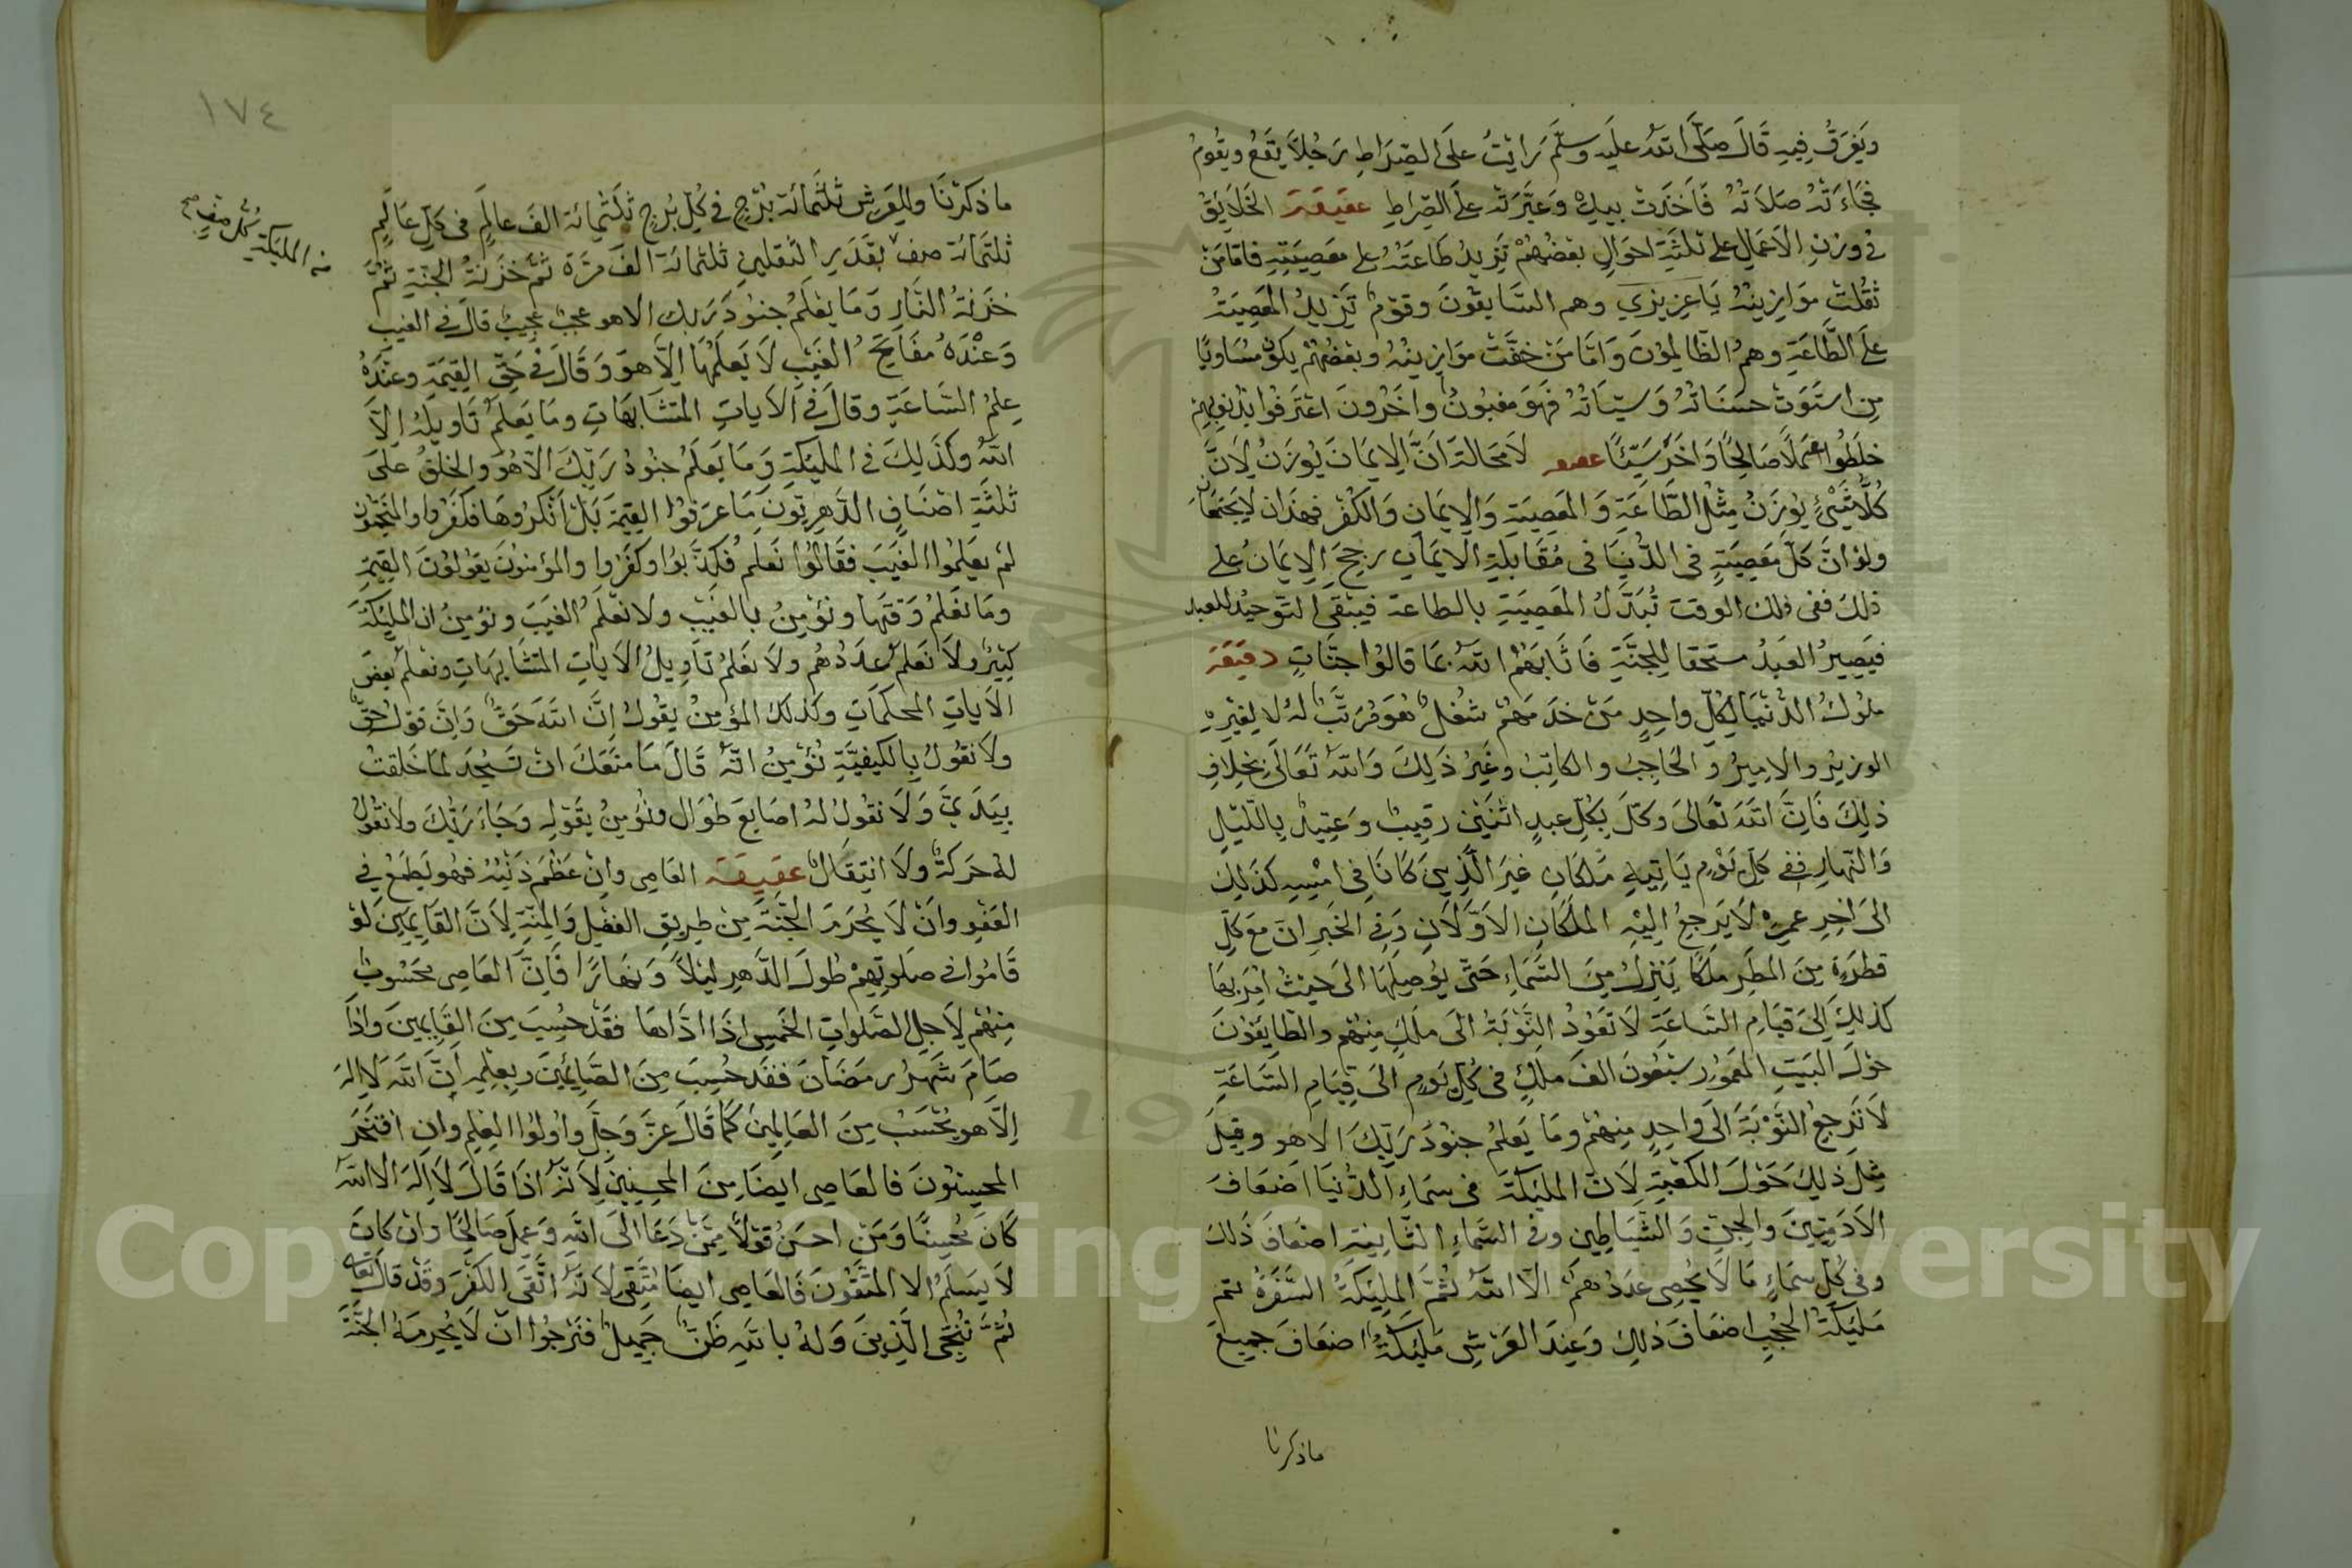 ويغرق فيه قال صلى الله عليه وسلم رايت على الصراط رجلا يقع ويقوم
فجاءته صلاته فاخذت بيده وعبرته على الصراط عقيقة الخلايق
في وزن الاعمال على ثلثة احوال بعضهم تزيد طاعته على معصيته فاما من
ثقلت موازينه يا عزيزي وهم السابقون وقوم تزيد المعصية
على الطاعة وهم الظالمون واما من خفت موازينه وبعضهم يكون مساويا
من استوت حسناته وسيئاته فهو مغبون واخرون اعترفوا بذنوبهم
خلطوا عملا صالحا واخر سيئا لا محالة ان الايمان يوزن لان
كل شيئ يوزن مثل الطاعة والمعصية والايمان والكفر فهذان لا يجتمعان
ولو ان كل معصية في الدنيا في مقابلة الايمان رجح الايمان على
ذلك ففى ذلك الوقت تبدل المعصية بالطاعة فيبقى التوحيد للعبد
فيصير العبد مستحقا للجنة فاثابهم الله بما قالوا جنات دقيقة
ملوك الدنيا لكل واحد من خدمهم شغل هو مرتب له لا لغيره
الوزير والامير والحاجب والكاتب وغير ذلك والله تعالى بخلاف
ذلك فان الله تعالى وكل بكل عبد اثنين رقيب وعتيد بالليل
والنهار ففي كل يوم ياتيه ملكان غير الذين كانا في امسه كذلك
الى اخر عمره لا يرجع اليه الملكان الاولان وفي الخبر ان مع كل
قطرة من المطر ملكا ينزل من السماء حتى يوصلها الى حيث امر بها
كذلك الى قيام الساعة لا تعود النوبة الى ملك منهم والطايفون
حول البيت المعمور سبعون الف ملك في كل يوم الى قيام الساعة
لا ترجع النوبة الى واحد منهم وما يعلم جنود ربك الا هو وقيل
مثل ذلك حول الكعبة لان المليكة في سماء الدنيا اضعاف
الادميين والجن والشياطين وفي السماء الثانية اضعاف ذلك
وفي كل سماء ما لا يحصى عددهم الا الله ثم المليكة السفرة ثم
مليكة الحجب اضعاف ذلك وعند العرش مليكة اضعاف جميع
ماذكرنا
١٧٤
ما ذكرنا وللعرش ثلثمائة برج في كل برج ثلثمائة الف عالم في كل عالم
من المليكة كل صف صح
ثلثمائة صف بقدر الثقلين ثلثمائة الف مرة ثم خزنة الجنة ثم
خزنة النار وما يعلم جنود ربك الا هو عجب عجيب قال في الغيب
وعنده مفاتح الغيب لا يعلمها الا هو وقال في حق القيمة وعنده
علم الساعة وقال في الايات المتشابهات وما يعلم تاويله الا
الله وكذلك في المليكة وما يعلم جنود ربك الا هو والخلق على
ثلثة اصناف الدهريون ما عرفوا القيمة بل انكروها فكفروا والمنجمون
لم يعلموا الغيب فقالوا نعلم فكذبوا وكفروا والمؤمنون يقولون القيمة
وما نعلم وقتها ونؤمن بالغيب ولا نعلم الغيب ونؤمن ان المليكة
كثير ولا نعلم عددهم ولا نعلم تاويل الايات المتشابهات ونعلم بعض
الايات المحكمات وكذلك المؤمن يقول ان الله حق وان قوله حق
ولا نقول بالكيفية نؤمن انه قال ما منعك ان تسجد لما خلقت
بيدي ولا نقول له اصابع طوال ونؤمن بقوله وجاء ربك ولا نقول
له حركة ولا انتقال عقيقة العاصى وان عظم ذنبه فهو يطمع في
العفو وان لا يحرم الجنة من طريق الفضل والمنة لان القايمين لو
قاموا في صلوتهم طول الدهر ليلا ونهارا فان العاصى محسوب
منهم لاجل الصلوات الخمس اذا اداها فقد حسب من القايمين واذا
صام شهر رمضان فقد حسب من الصايمين وبعلمه ان الله لا اله
الا هو يحسب من العالمين كما قال عز وجل واولوا العلم وان افتخر
المحسنون فالعاصى ايضا من المحسنين لانه اذا قال لا اله الا الله
كان محسنا ومن احسن قولا ممن دعا الى الله وعمل صالحا وان كان
لا يسلم الا المتقون فالعاصى ايضا متقى لانه اتقى الكفر وقد قال تعالى
ثم ننجى الذين وله بالله ظن جميل فنرجوا ان لا يحرمه الجنة
Copyright © King Saud University